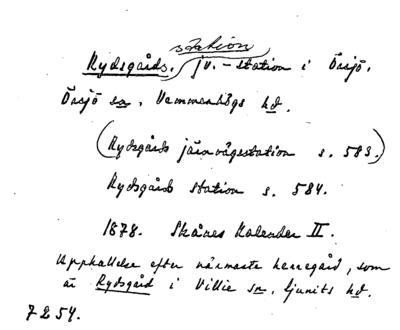 station
Rydsgårds. jv. - station i Örsjö,
Örsjö sn, Vemmenhögs hd.
(Rydsgårds järnvägsstation s. 583.)
Rydsgård station s. 584.
1878. Skånes Kalender II.
Upphallelse efter närmaste herregård, som
är Rydsgård i Villie sn, Ljunits hd.
7254.